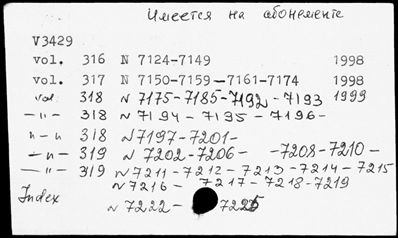 Имеется на абонементе
V3429
vol. 316 N 7124-7149 1998
vol. 317 N 7150-7159-7161-7174 1998
vol. 318 N 7175-7185-7192-7193 1999
-"- 318 N 7194-7195-7196-
"-"- 318 N 7197-7201-
-"- 319 N 7202-7206- -7208-7210-
-"- 319 N 7211-7212-7213-7214-7215
N 7216- 7217-7218-7219
Index
N 7222-